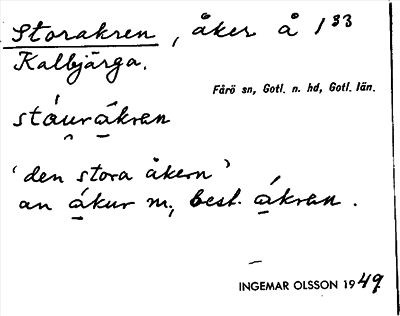 Storakren, åker å 1³³
Kalbjärga.
Fårö sn, Gotl. n. hd, Gotl. län.
stáu̯rá̱kran
'den stora åkern'
an á̱kur m., best. á̱kran.
INGEMAR OLSSON 1949